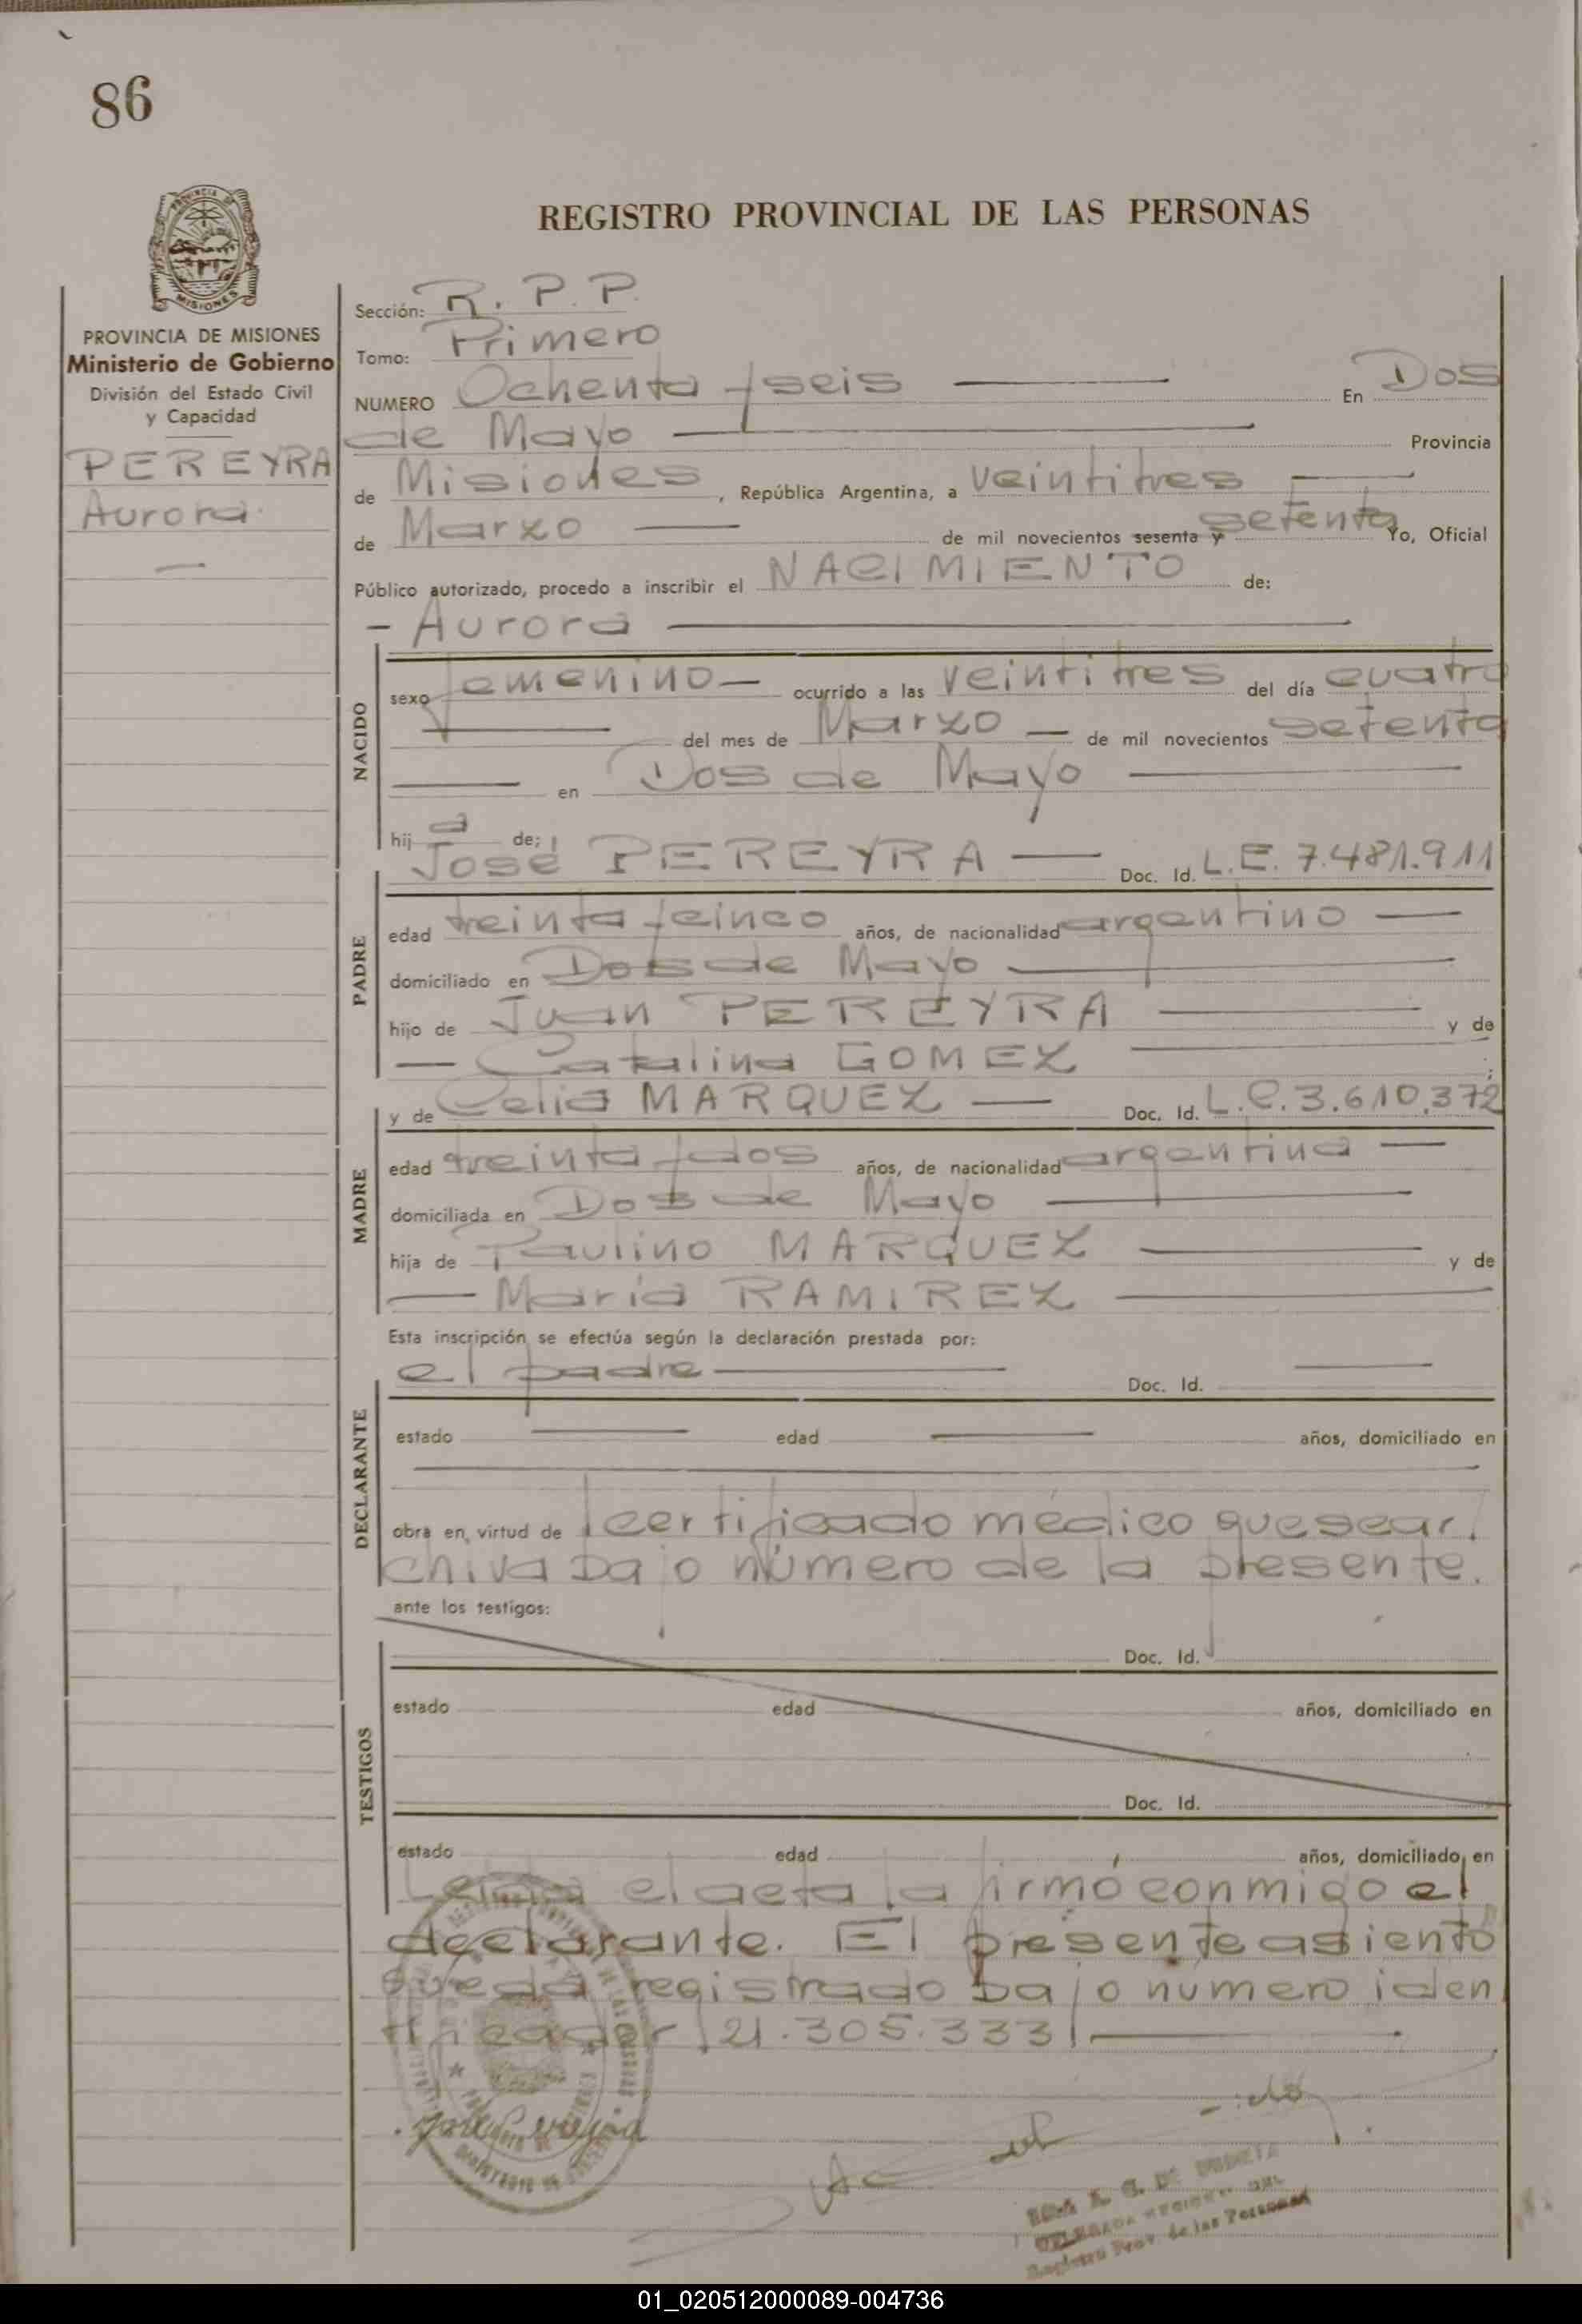 86
REGISTRO PROVINCIAL DE LAS PERSONAS
PROVINCIA DE MISIONES
Ministerio de Gobierno
División del Estado Civil
y Capacidad
PEREYRA
Aurora
Sección: R. P. P.
Tomo: Primero
NUMERO Ochenta y seis En Dos
de Mayo Provincia
de Misiones, República Argentina, a veintitres
de Marzo de mil novecientos sesenta y setenta Yo, Oficial
Público autorizado, procedo a inscribir el NACIMIENTO de:
- Aurora
NACIDO
sexo femenino ocurrido a las veintitres del día cuatro
del mes de Marzo de mil novecientos setenta
en Dos de Mayo
hij a de;
José PEREYRA Doc. Id. L.E. 7.481.911
PADRE
edad treinta y cinco años, de nacionalidad argentino
domiciliado en Dos de Mayo
hijo de Juan PEREYRA y de
Catalina GOMEZ
y de Celia MARQUEZ Doc. Id. L.C. 3.610.372
MADRE
edad treinta y dos años, de nacionalidad argentina
domiciliada en Dos de Mayo
hija de Paulino MARQUEZ y de
María RAMIREZ
Esta inscripción se efectúa según la declaración prestada por:
el padre Doc. Id.
DECLARANTE
estado edad años, domiciliado en
obra en virtud de certificado médico que se ar
chiva bajo número de la presente.
ante los testigos:
Doc. Id.
TESTIGOS
estado edad años, domiciliado en
Doc. Id.
estado edad años, domiciliado en
Leida el acta la firmó conmigo el
declarante. El presente asiento
queda registrado bajo número iden
tificador 21.305.333
Registro Prov. de las Personas
01_020512000089-004736